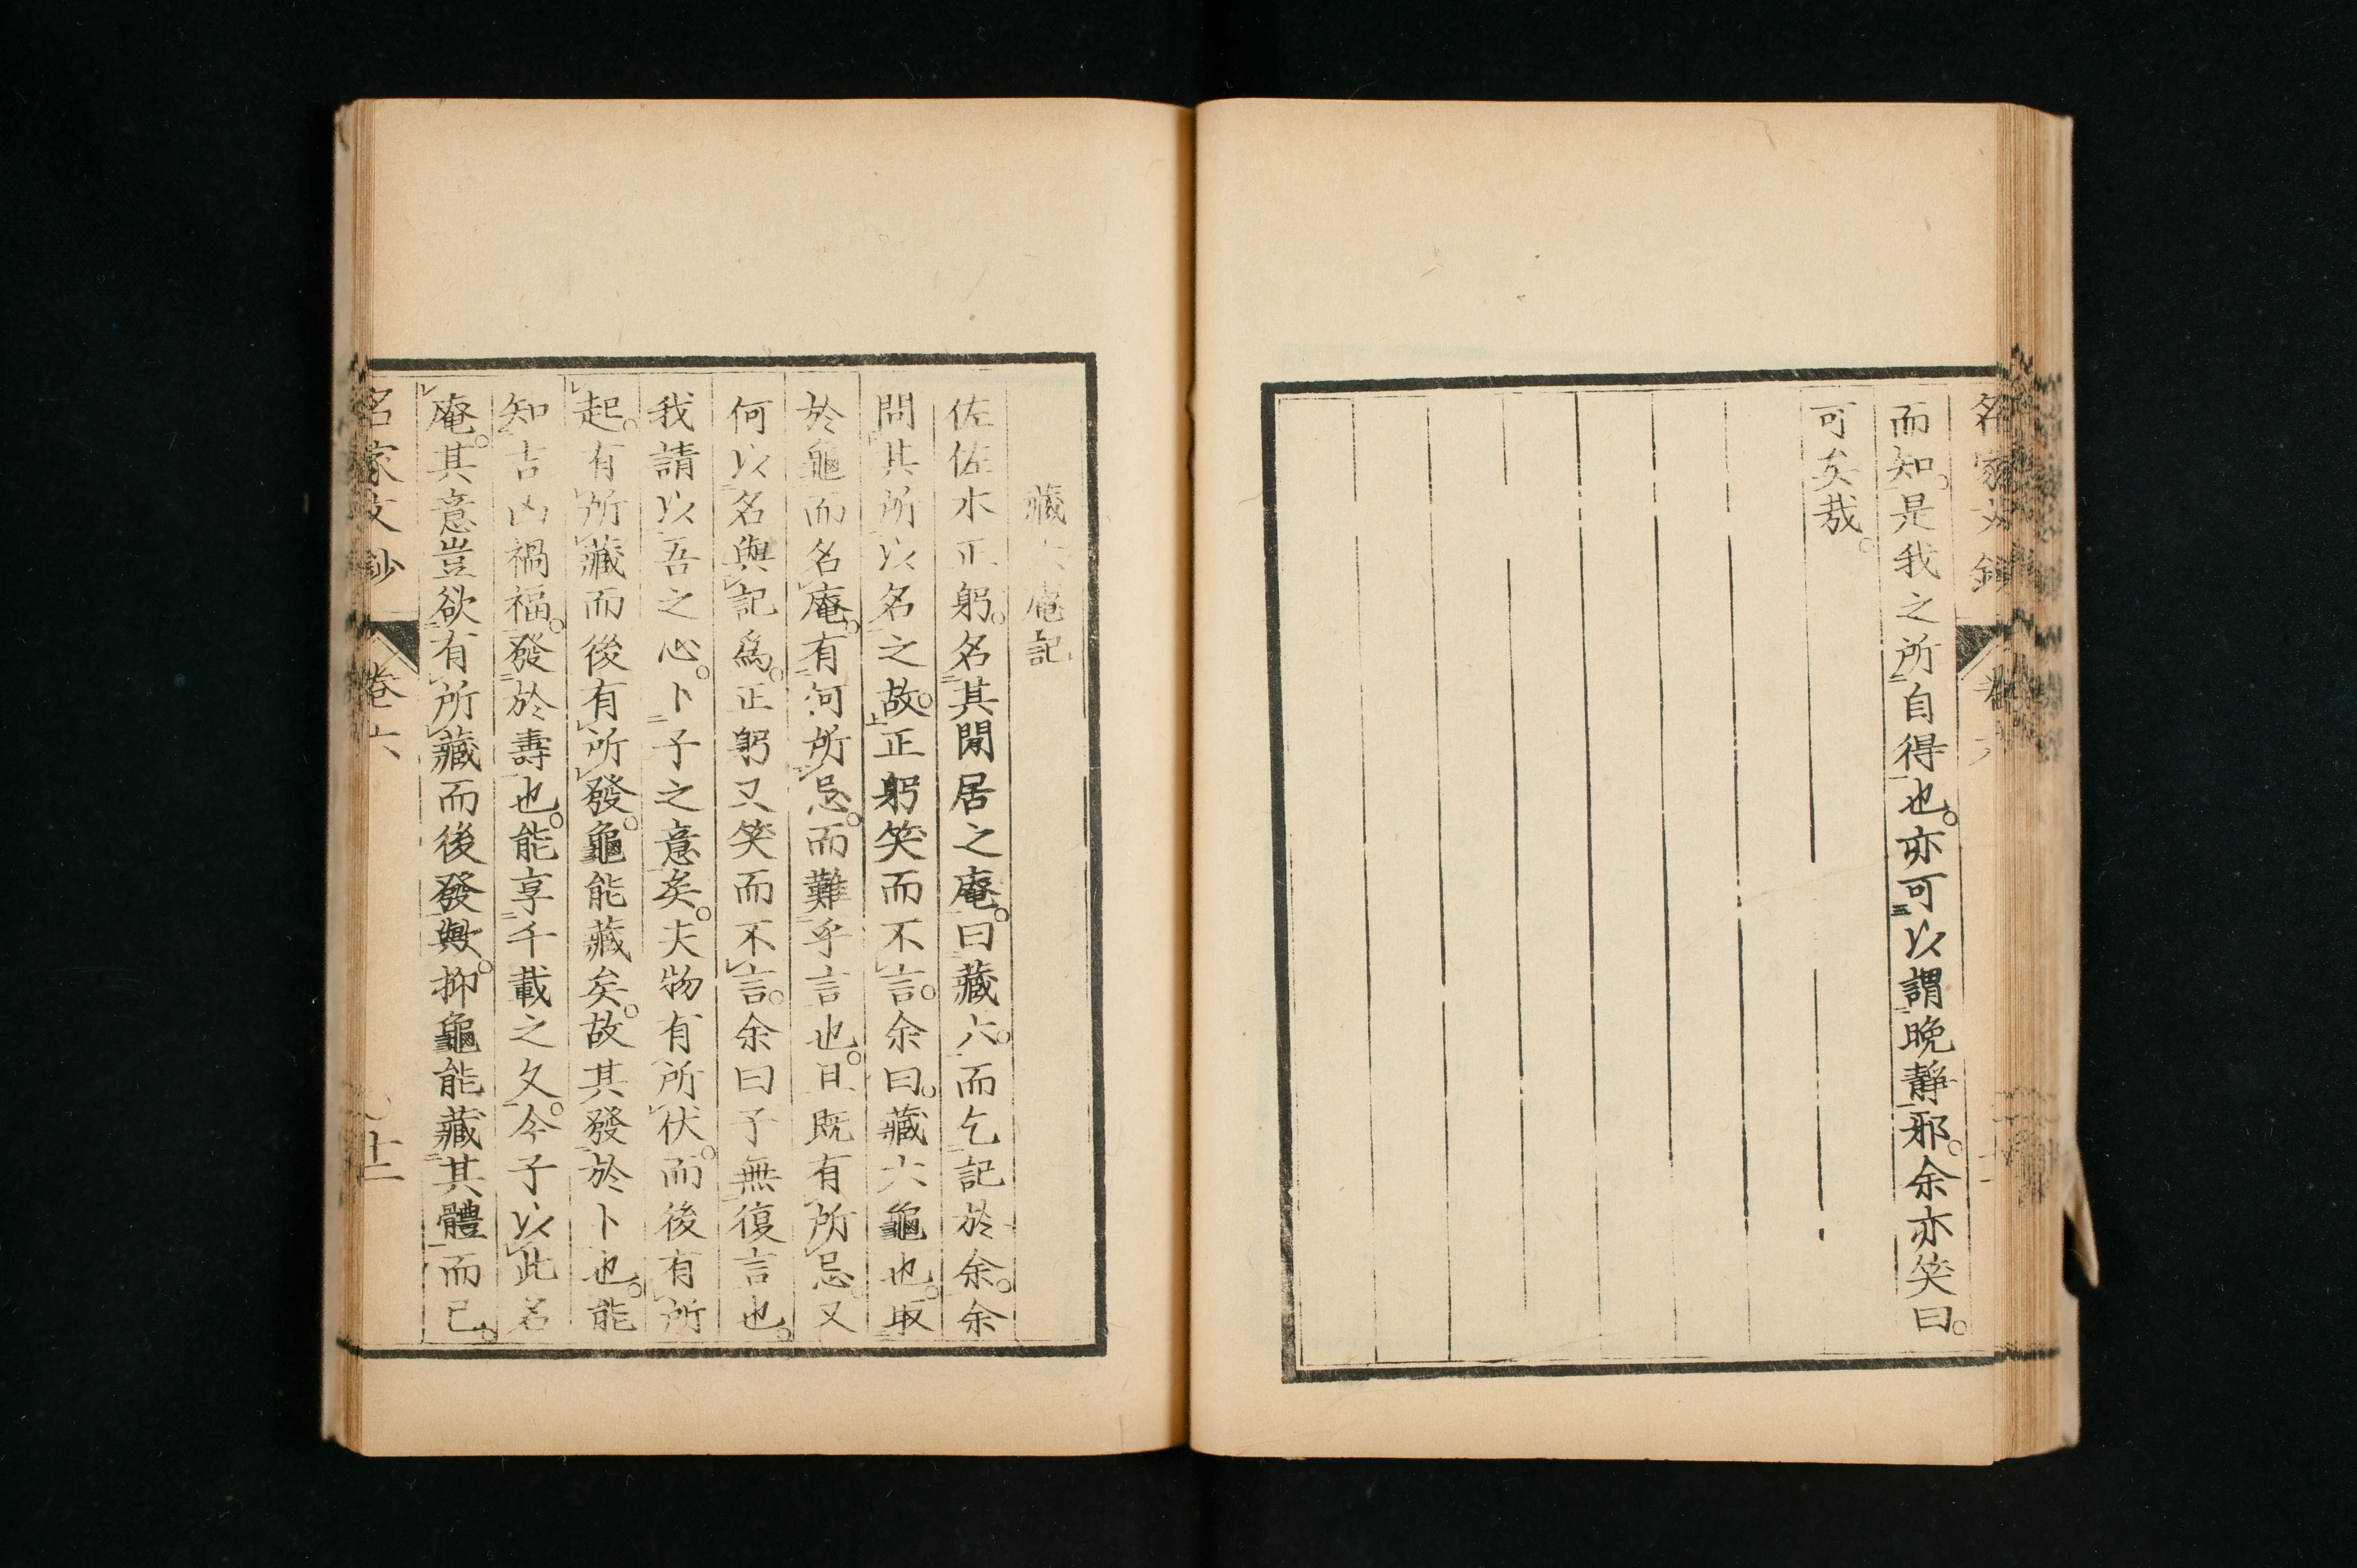 名家文鈔 卷六
而知。是我之所自得也。亦可以謂晚靜邪。余亦笑曰。
可矣哉。
藏六庵記
佐佐木正躬。名其閒居之庵。曰藏六。而乞記於余。余
問其所以名之故。正躬笑而不言。余曰。藏六龜也。取
於龜而名庵。有何所忌。而難乎言也。且既有所忌。又
何以名與記爲。正躬又笑而不言。余曰子無復言也。
我請以吾之心。卜子之意矣。夫物有所伏。而後有所
起。有所藏而後有所發。龜能藏矣。故其發於卜也。能
知吉凶禍福。發於壽也。能享千載之久。今子以此名
庵。其意豈欲有所藏而後發與。抑龜能藏其體而已。
名家文鈔 卷六 十二